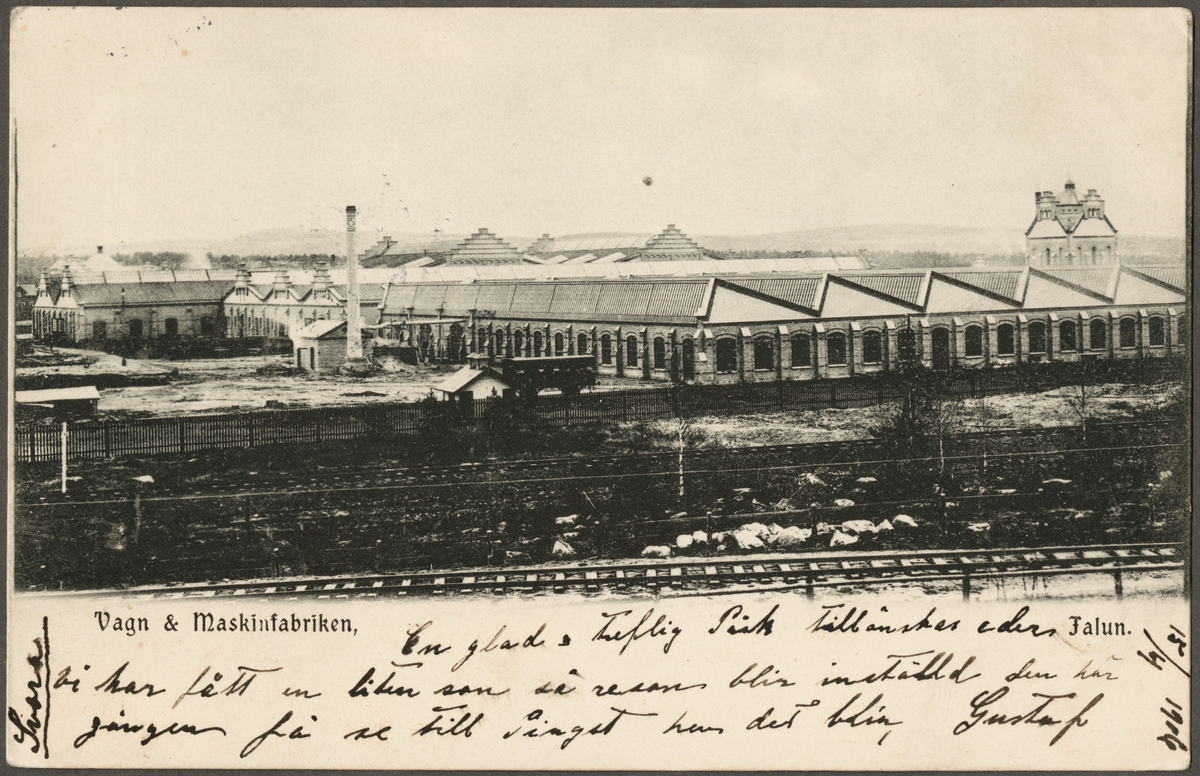 Vagn & Maskinfabriken, Falun.
En glad & treflig Påsk tillönskas eder
Vi har fått en liten son så resan blir inställd den här
gången få se till Pingst hur det blir, Gustaf
Svara
15/4 1906